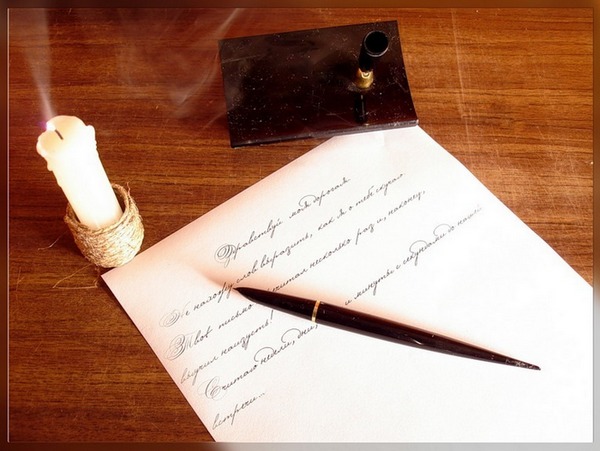 Здравствуй моя дорогая.
Не нахожу слов выразить, как я о тебе скучаю
Твоё письмо считал несколько раз и, наконец,
выучил наизусть!
Считаю недели, дни, и минуты с секундами до нашей
встречи...